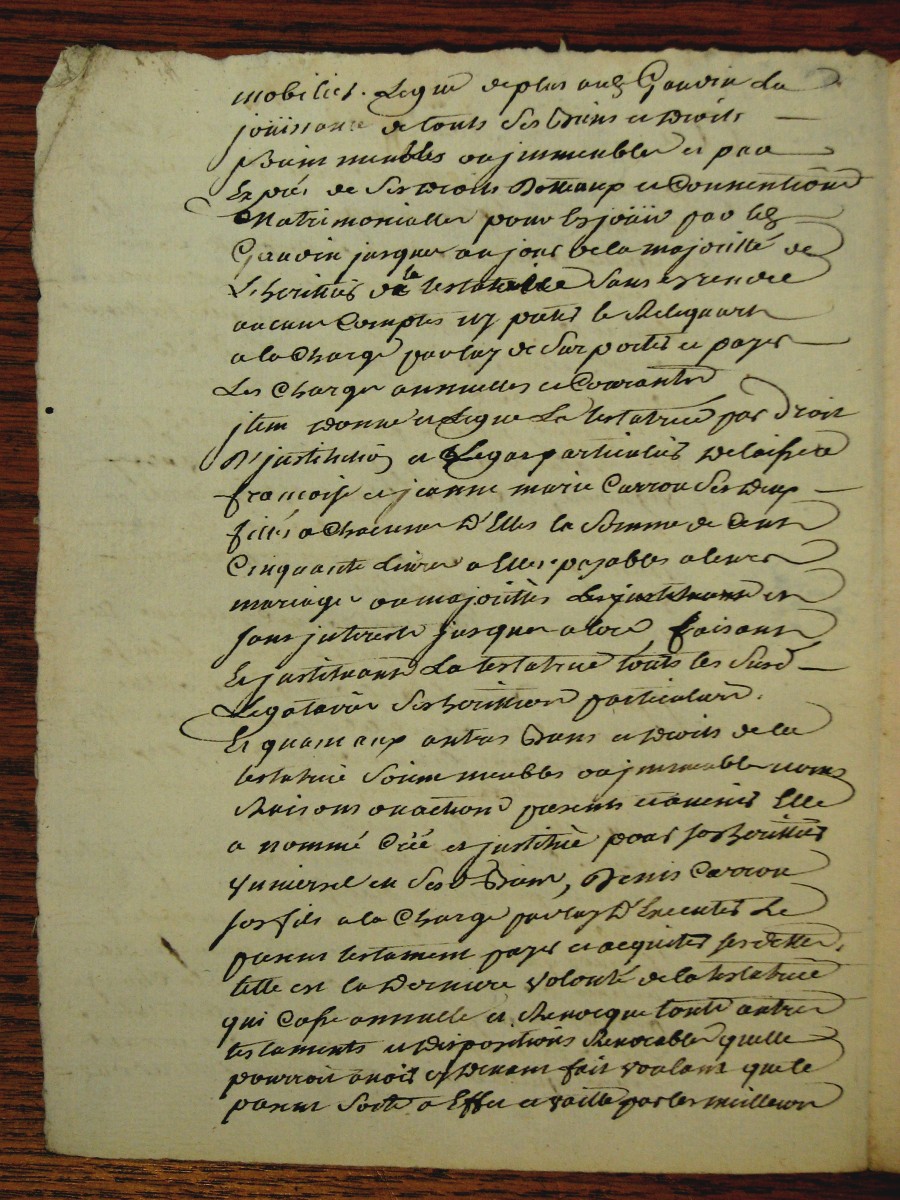 mobilier. Legue deplus aud Gaudin La
joüissance de touts ses biens et droits
soint meubles ou jmmeubles et par
Exprés de ses droits Dotteaux et Conventions
Matrimonialles pour En joüir par led
Gaudin jusques au jour de la majoritté de
L'heritier de la testatrice sans En rendre
aucun Comptes ny prêter le Relequat
a la Charge par luy de suporter et payer
Les Charges annuelles et Courantes
jtem donne et Legue La testatrice par droit
D'jnstitution et Legat particulier delaissé a
francoise et jeanne marie Carron ses deux
filles a Chacune D'Elles la somme de Cent
Cinquante Livres a Elles payables a leurs
mariages ou majorittés
sans jnterests jusques alors faisant
Et jnstituant La testatrice touts les susd
Legatairs ses heritiers particuliers.
Et quant aux autres biens et droits de la
testatrice soint meubles ou jmmeubles noms
Raisons ou actions presents et avenir Elle
a nommé Créé et jnstitué pour son heritier
Vniversel en sesd biens, Denis Carron
son fils a la Charge par luy D'Executer Le
present testament payer et acquiter ses dettes.
telle est la derniere volonté de la testatrice
qui Casse annulle et Revocque touts autres
testaments et dispositions Revocables quelle
pourroit avoir cy devant fait voulant que le
present sorte a Effet et vaille par les meilleurs